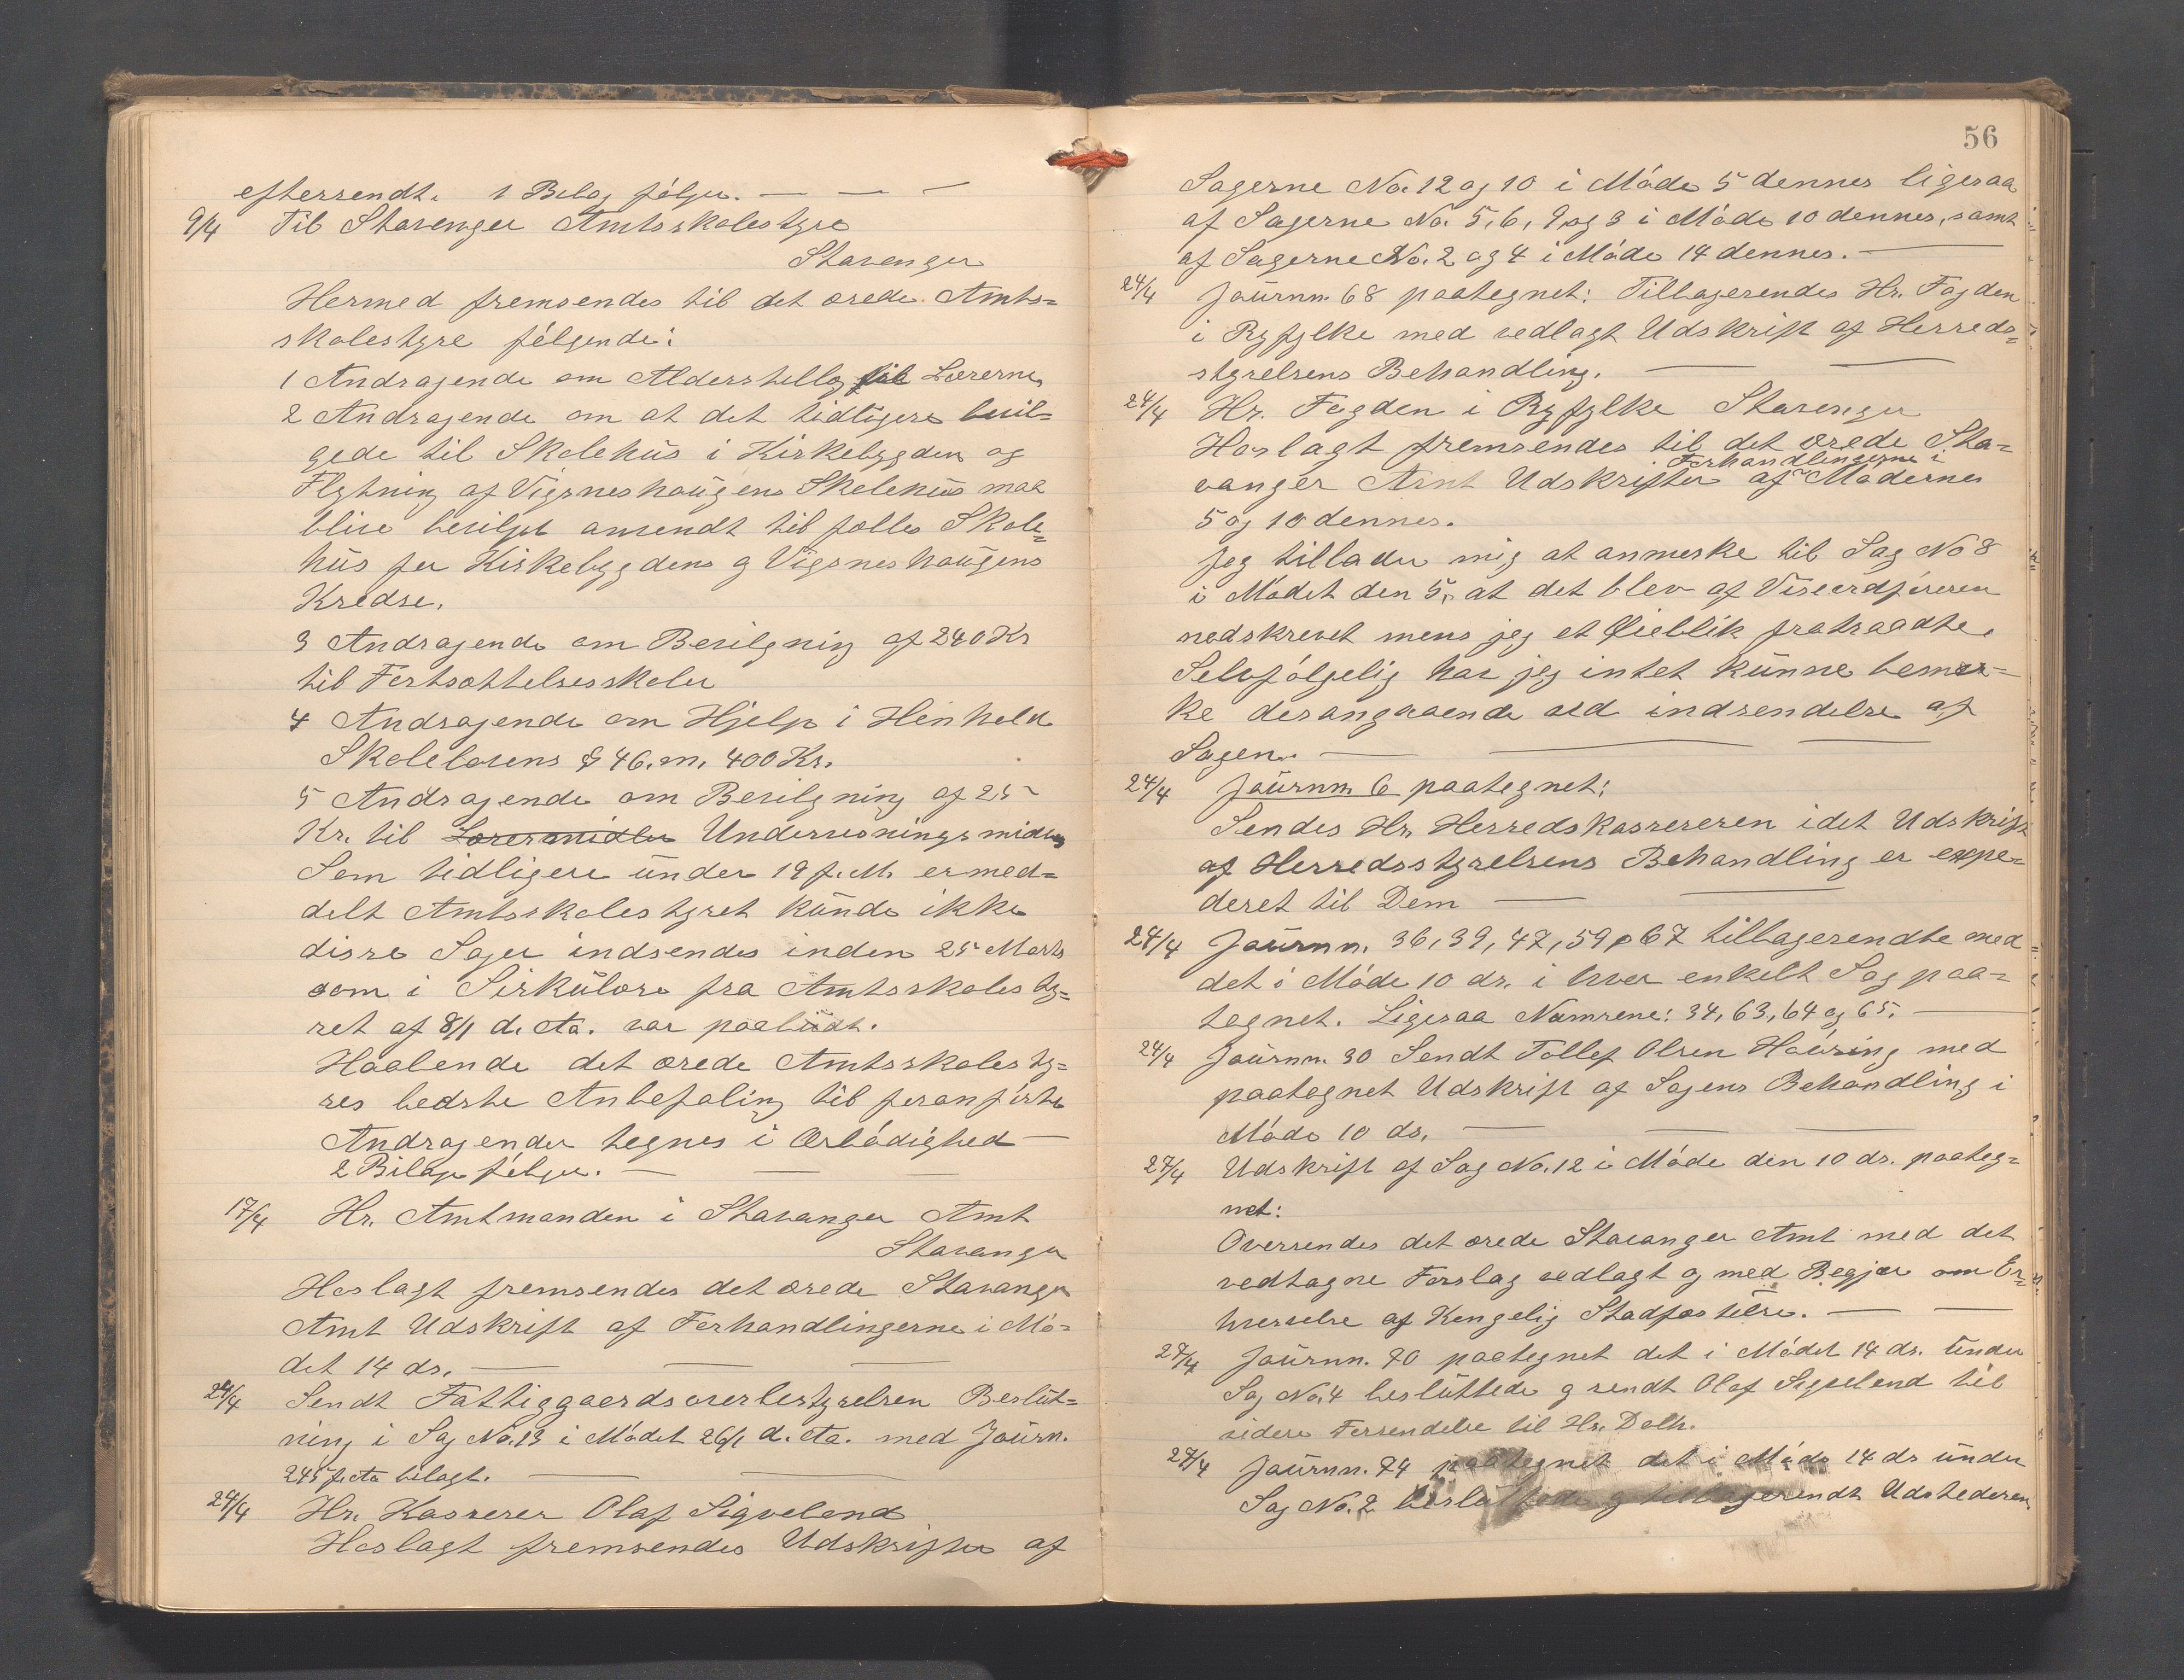 eftersendt. 1 Bilag følger. — — —
9/4 Til Stavanger Amtsskolestyre
Stavanger
Hermed fremsendes til det ærede Amts=
skolestyre følgende:
1 Andragende om Alderstillæg til Lærerne
2 Andragende om at det tidligere bevil=
gede til Skolehus i Kirkebygden og
Flytning af Vigsneshaugens Skolehus maa
blive bevilget anvendt til fælles Skole=
hus for Kirkebygdens og Vigsneshaugens
Kredse.
3 Andragende om Bevilgning af 240 Kr
til Fortsættelsesskoler
4 Andragende om Hjelp i Henhold
Skolelovens § 46. m. 400 Kr.
5 Andragende om Bevilgning af 25
Kr. til Læremidler Undervisningsmidler
Som tidligere under 19 f. M. er med=
delt Amtsskolestyret kunde ikke
disse Sager indsendes inden 25 Marts
som i Sirkulære fra Amtsskolesty=
ret af 8/1 d. Aa. var paabudt.
Haabende det ærede Amtsskolesty=
res bedste Anbefaling til foranførte
Andragender tegnes i Ærbødighed —
2 Bilage følger. — —
17/4 Hr. Amtmanden i Stavanger Amt
Stavanger
Hoslagt fremsendes det ærede Stavanger
Amt Udskrift af Forhandlingerne i Mø=
det 14 ds. — — —
24/4 Sendt Fattiggaardsoverbestyrelsen Beslut=
ning i Sag No. 13 i Mødet 26/1 d. Aa. med Journ.
245 f. Aa bilagt. — —
24/4 Hr. Kasserer Olaf Sigveland
Hoslagt fremsendes Udskrifter af
56
Sagerne No. 12 og 10 i Møde 5 dennes ligesaa
af Sagerne No. 5, 6, 9, og 3 i Møde 10 dennes, samt
af Sagerne No. 2 og 4 i Møde 14 dennes. —
24/4 Journn. 68 paategnet: Tilbagesendes Hr. Fogden
i Ryfylke med vedlagt Udskrift af Herreds=
styrelsens Behandling. — —
24/4 Hr. Fogden i Ryfylke Stavanger
Hoslagt fremsendes til det ærede Sta=
Forhandlingerne i
vanger Amt Udskrifter af Mødernes
5 og 10 dennes.
Jeg tillader mig at anmerke til Sag No 8
i Mødet den 5. at det blev af Viseordføreren
nedskrevet mens jeg et Øieblik fratraadte.
Selvfølgelig har jeg intet kunne bemær=
ke desangaaende ved indsendelse af
Sagen. — — —
24/4 Journn. 6 paategnet:
Sendes Hr. Herredskassereren idet Udskrift
af Herredsstyrelsens Behandling er expe=
deret til Dem — —
24/4 Journn. 36, 39, 47, 59 o 67 tilbagesendte med
det i Møde 10 ds. i hver enkelt Sag paa=
tegnet. Ligesaa Numrene: 34, 63, 64 og 65. —
24/4 Journn. 30 Sendt Tollef Olsen Hausing med
paategnet Udskrift af Sagens Behandling i
Møde 10 ds. — — —
27/4 Udskrift af Sag No. 12 i Møde den 10 ds. paateg=
net:
Oversendes det ærede Stavanger Amt med det
vedtagne Forslag vedlagt og med Begjær om Er=
hvervelse af Kongelig Stadfæstelse. — —
27/4 Journn. 70 paategnet det i Mødet 14 ds. under
Sag No. 4 besluttede og sendt Olaf Sigveland til
videre Forsendelse til Hr. Dolk.
27/4 Journn. 74 paategnet det i Møde 14 ds under
Sag No. 2 besluttede og tilbagesendt Udstederen.